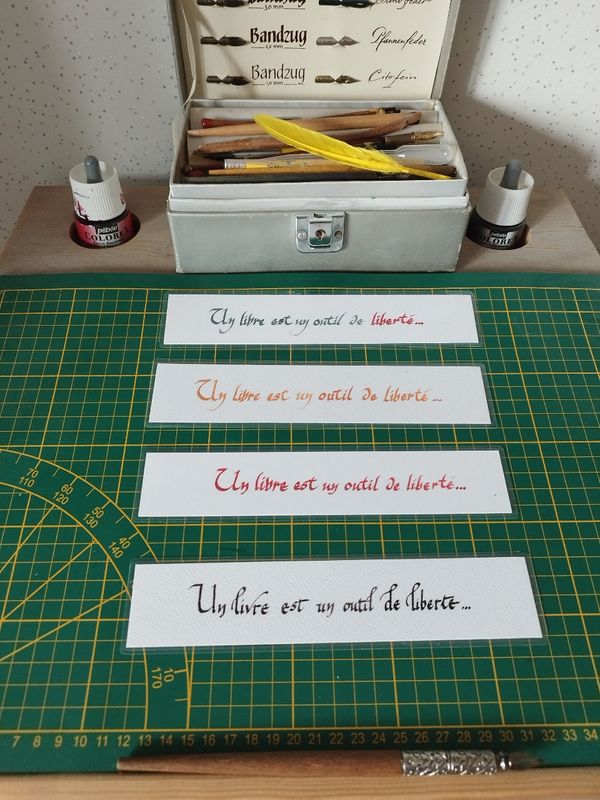 Bandzug
Bandzug Pfannenfeder
2,0 mm
Bandzug Citofein
pébéo
COLOREX
Un livre est un outil de liberté...
Un livre est un outil de liberté...
Un livre est un outil de liberté...
Un livre est un outil de liberté...
70 60 50 40
110 120 130 140
10
170
7 8 9 10 11 12 13 14 15 16 17 18 19 20 21 22 23 24 25 26 27 28 29 30 31 32 33 34